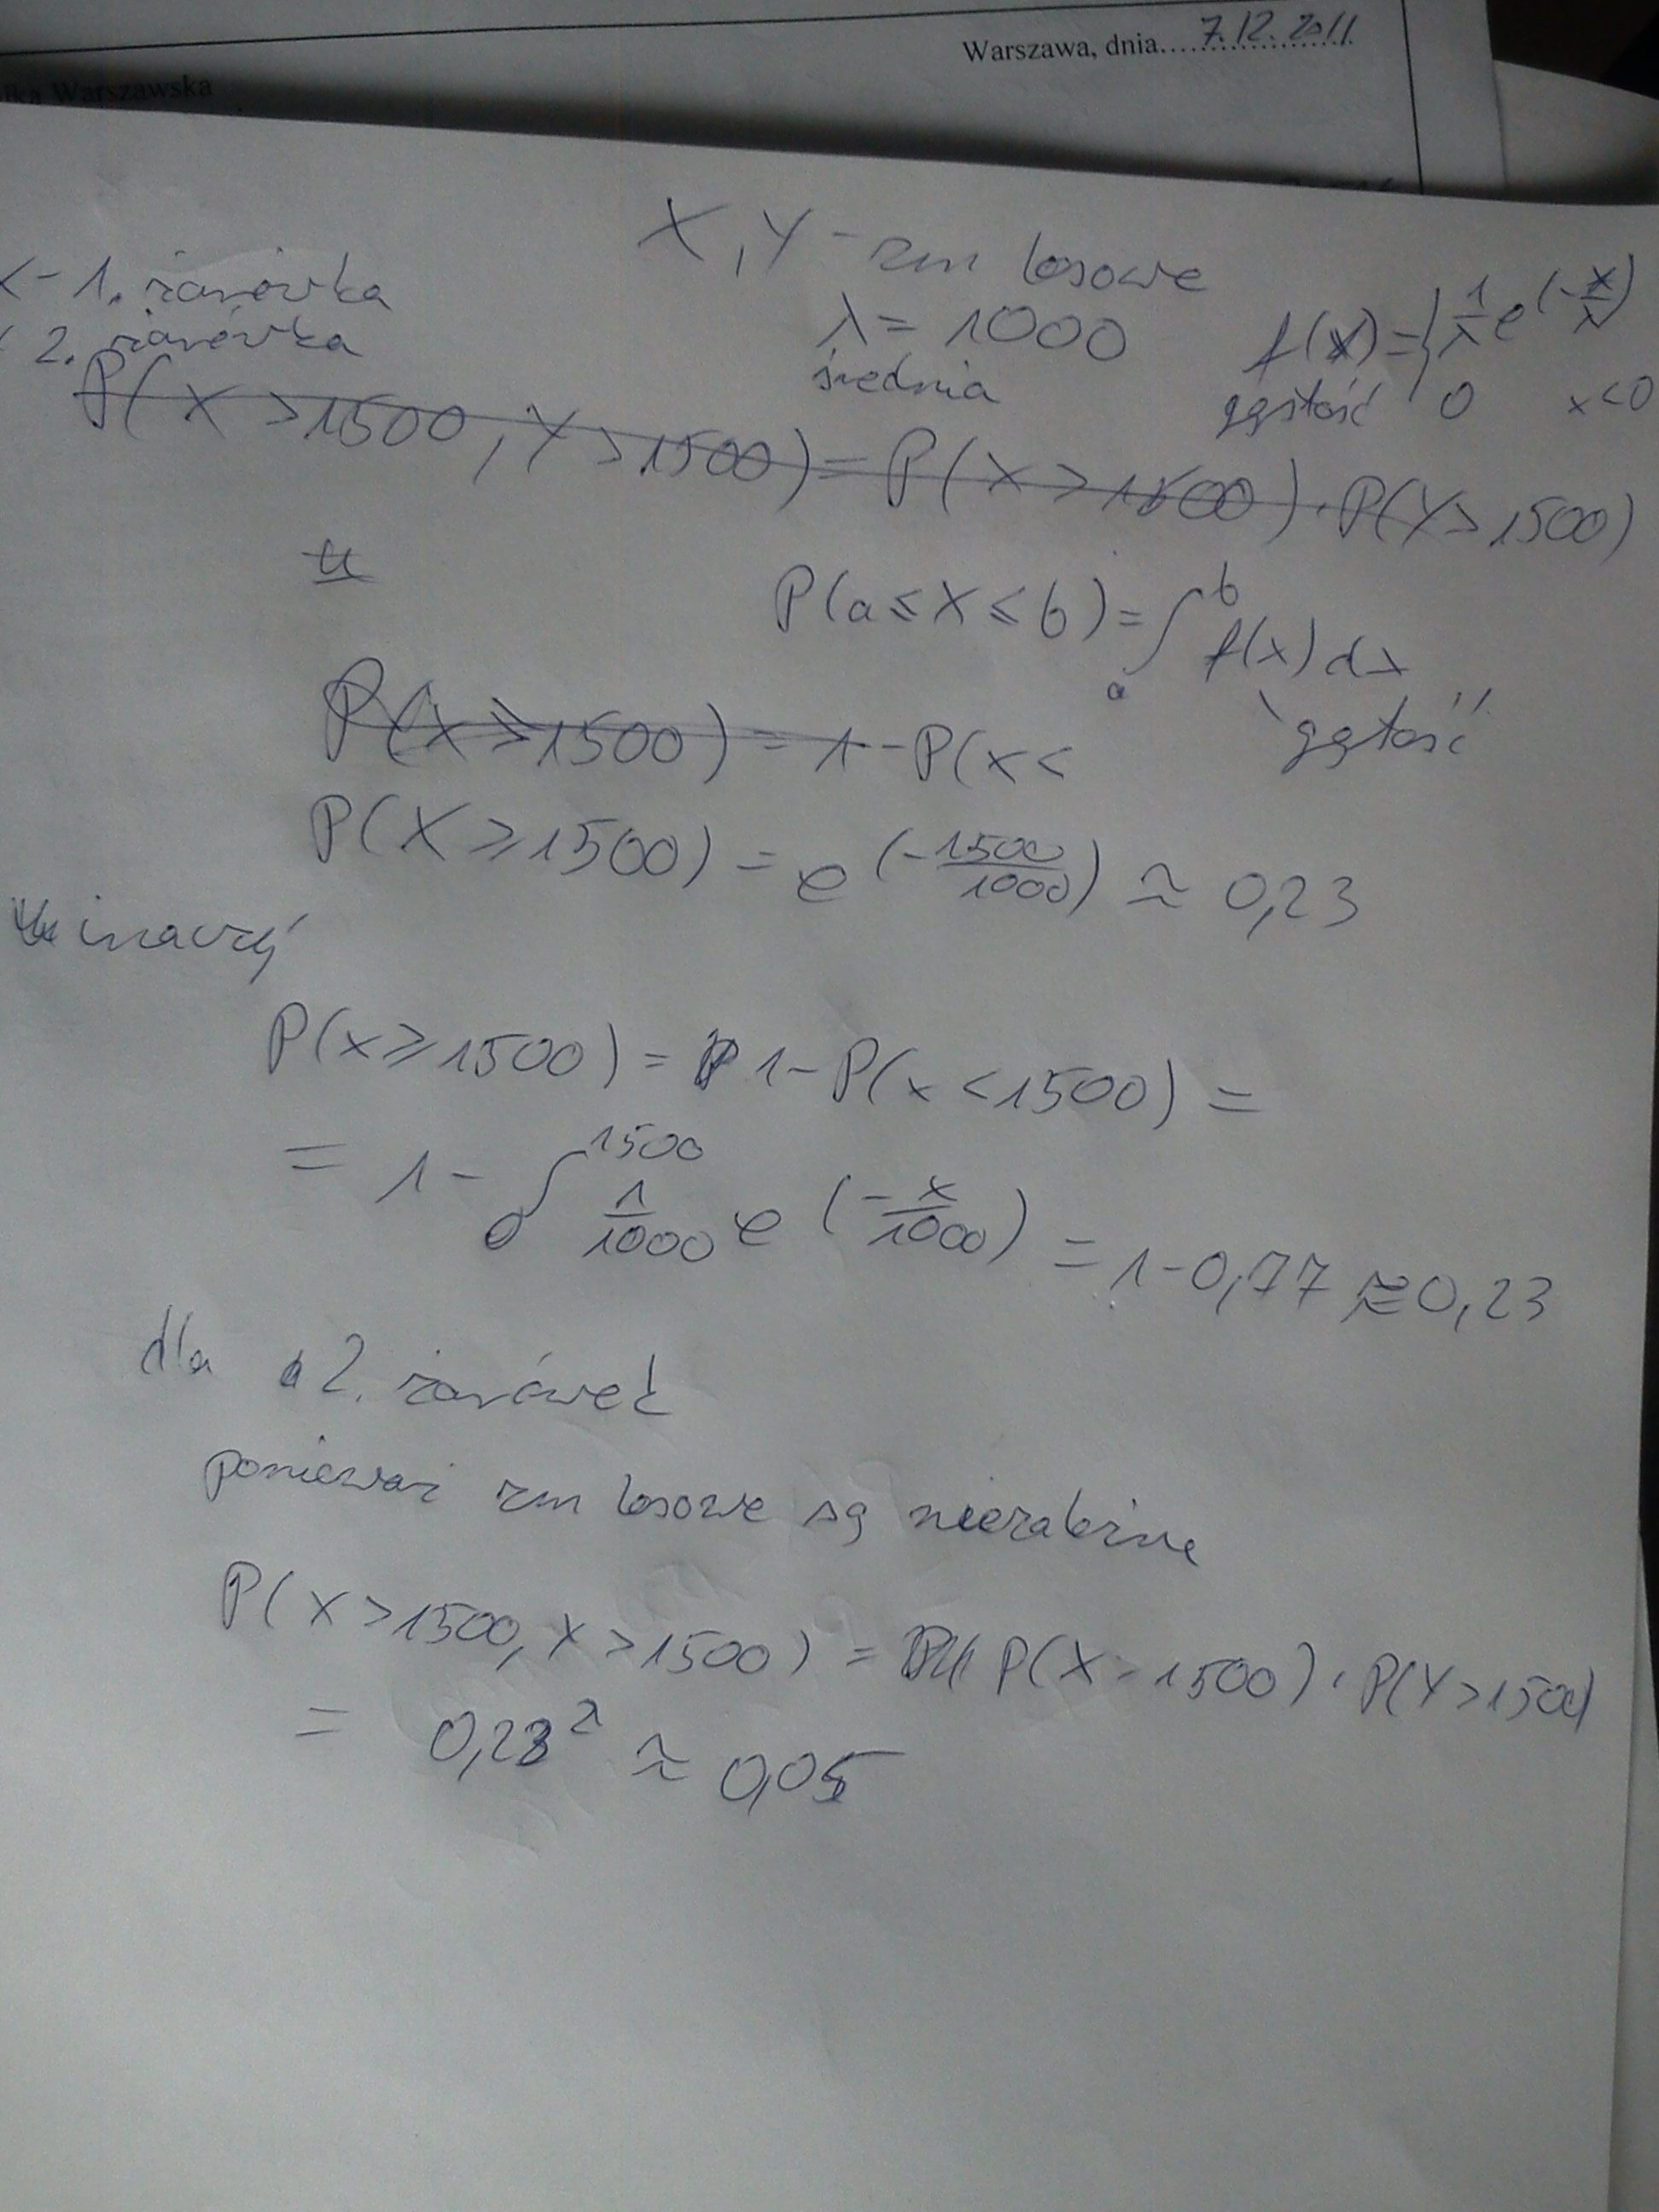 Warszawa, dnia 7.12.2011
łka Warszawska
X, Y - zm losowe
X - 1. żarówka
2. żarówka
λ = 1000
średnia
f(x) = { 1/λ e^(-x/λ)
gęstość 0 x<0
P(X > 1500, Y > 1500) = P(X > 1500) · P(Y > 1500)
P(a ≤ X ≤ b) = ∫_a^b f(x) dx
gęstość
P(X ≥ 1500) = 1 - P(x <
P(X ≥ 1500) = e^(-1500/1000) ≈ 0,23
inaczej
P(x ≥ 1500) = 1 - P(x < 1500) =
= 1 - ∫_0^1500 1/1000 e^(-x/1000) = 1 - 0,77 ≈ 0,23
dla 2. żarówek
ponieważ zm losowe są niezależne
P(X > 1500, X > 1500) = P(X > 1500) · P(Y > 1500)
= 0,23² ≈ 0,05